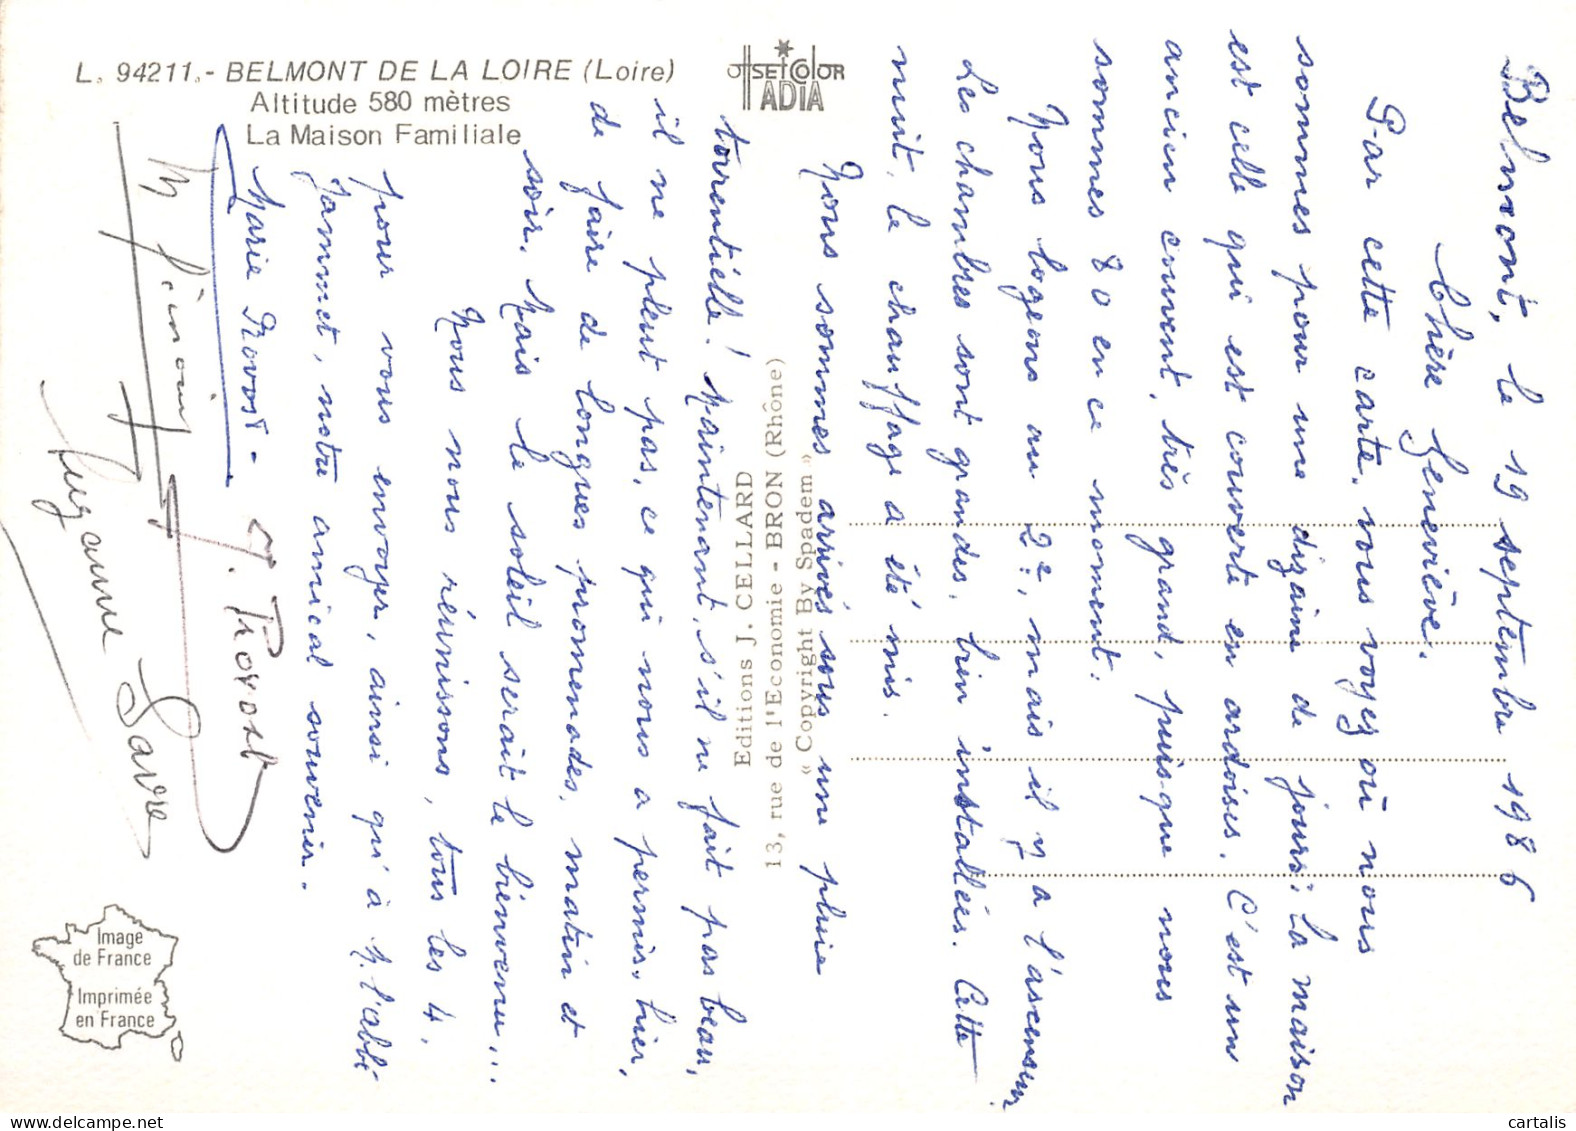 L. 94211.- BELMONT DE LA LOIRE (Loire)
Altitude 580 mètres
La Maison Familiale
OFFSETCOLOR
ADIA
Editions J. CELLARD
13, rue de l'Economie - BRON (Rhône)
« Copyright By Spadem »
Image
de France
Imprimée
en France
Belmont, le 19 septembre 1986
Chère Geneviève.
Par cette carte, vous voyez où nous
sommes pour une dizaine de jours : la maison
est celle qui est couverte en ardoises. C'est un
ancien couvent, très grand, puisque nous
sommes 80 en ce moment.
Nous logeons au 2e, mais il y a l'ascenseur
Les chambres sont grandes, bien installées. Cette
nuit, le chauffage a été mis.
Nous sommes arrivés sous une pluie
torrentielle ! Maintenant, s'il ne fait pas beau,
il ne pleut pas, ce qui nous a permis, hier,
de faire de longues promenades, matin et
soir. Mais le soleil serait le bienvenu...
Nous nous réunissons, tous les 4,
pour vous envoyer, ainsi qu'à M. l'abbé
Jammet, notre amical souvenir.
Marie Provost -
J. Provost
Suzanne Savre
cartalis.com